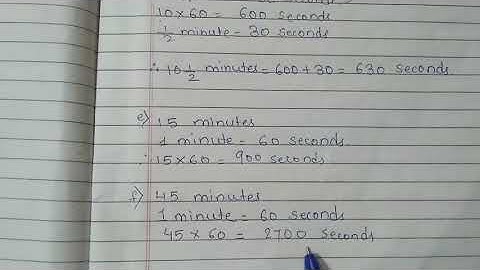 10 × 60 = 600 seconds
1/2 minute = 30 seconds
∴ 10 1/2 minutes = 600 + 30 = 630 seconds
e) 15 minutes
1 minute = 60 seconds
∴ 15 × 60 = 900 seconds
f) 45 minutes
1 minute = 60 seconds
45 × 60 = 2700 seconds